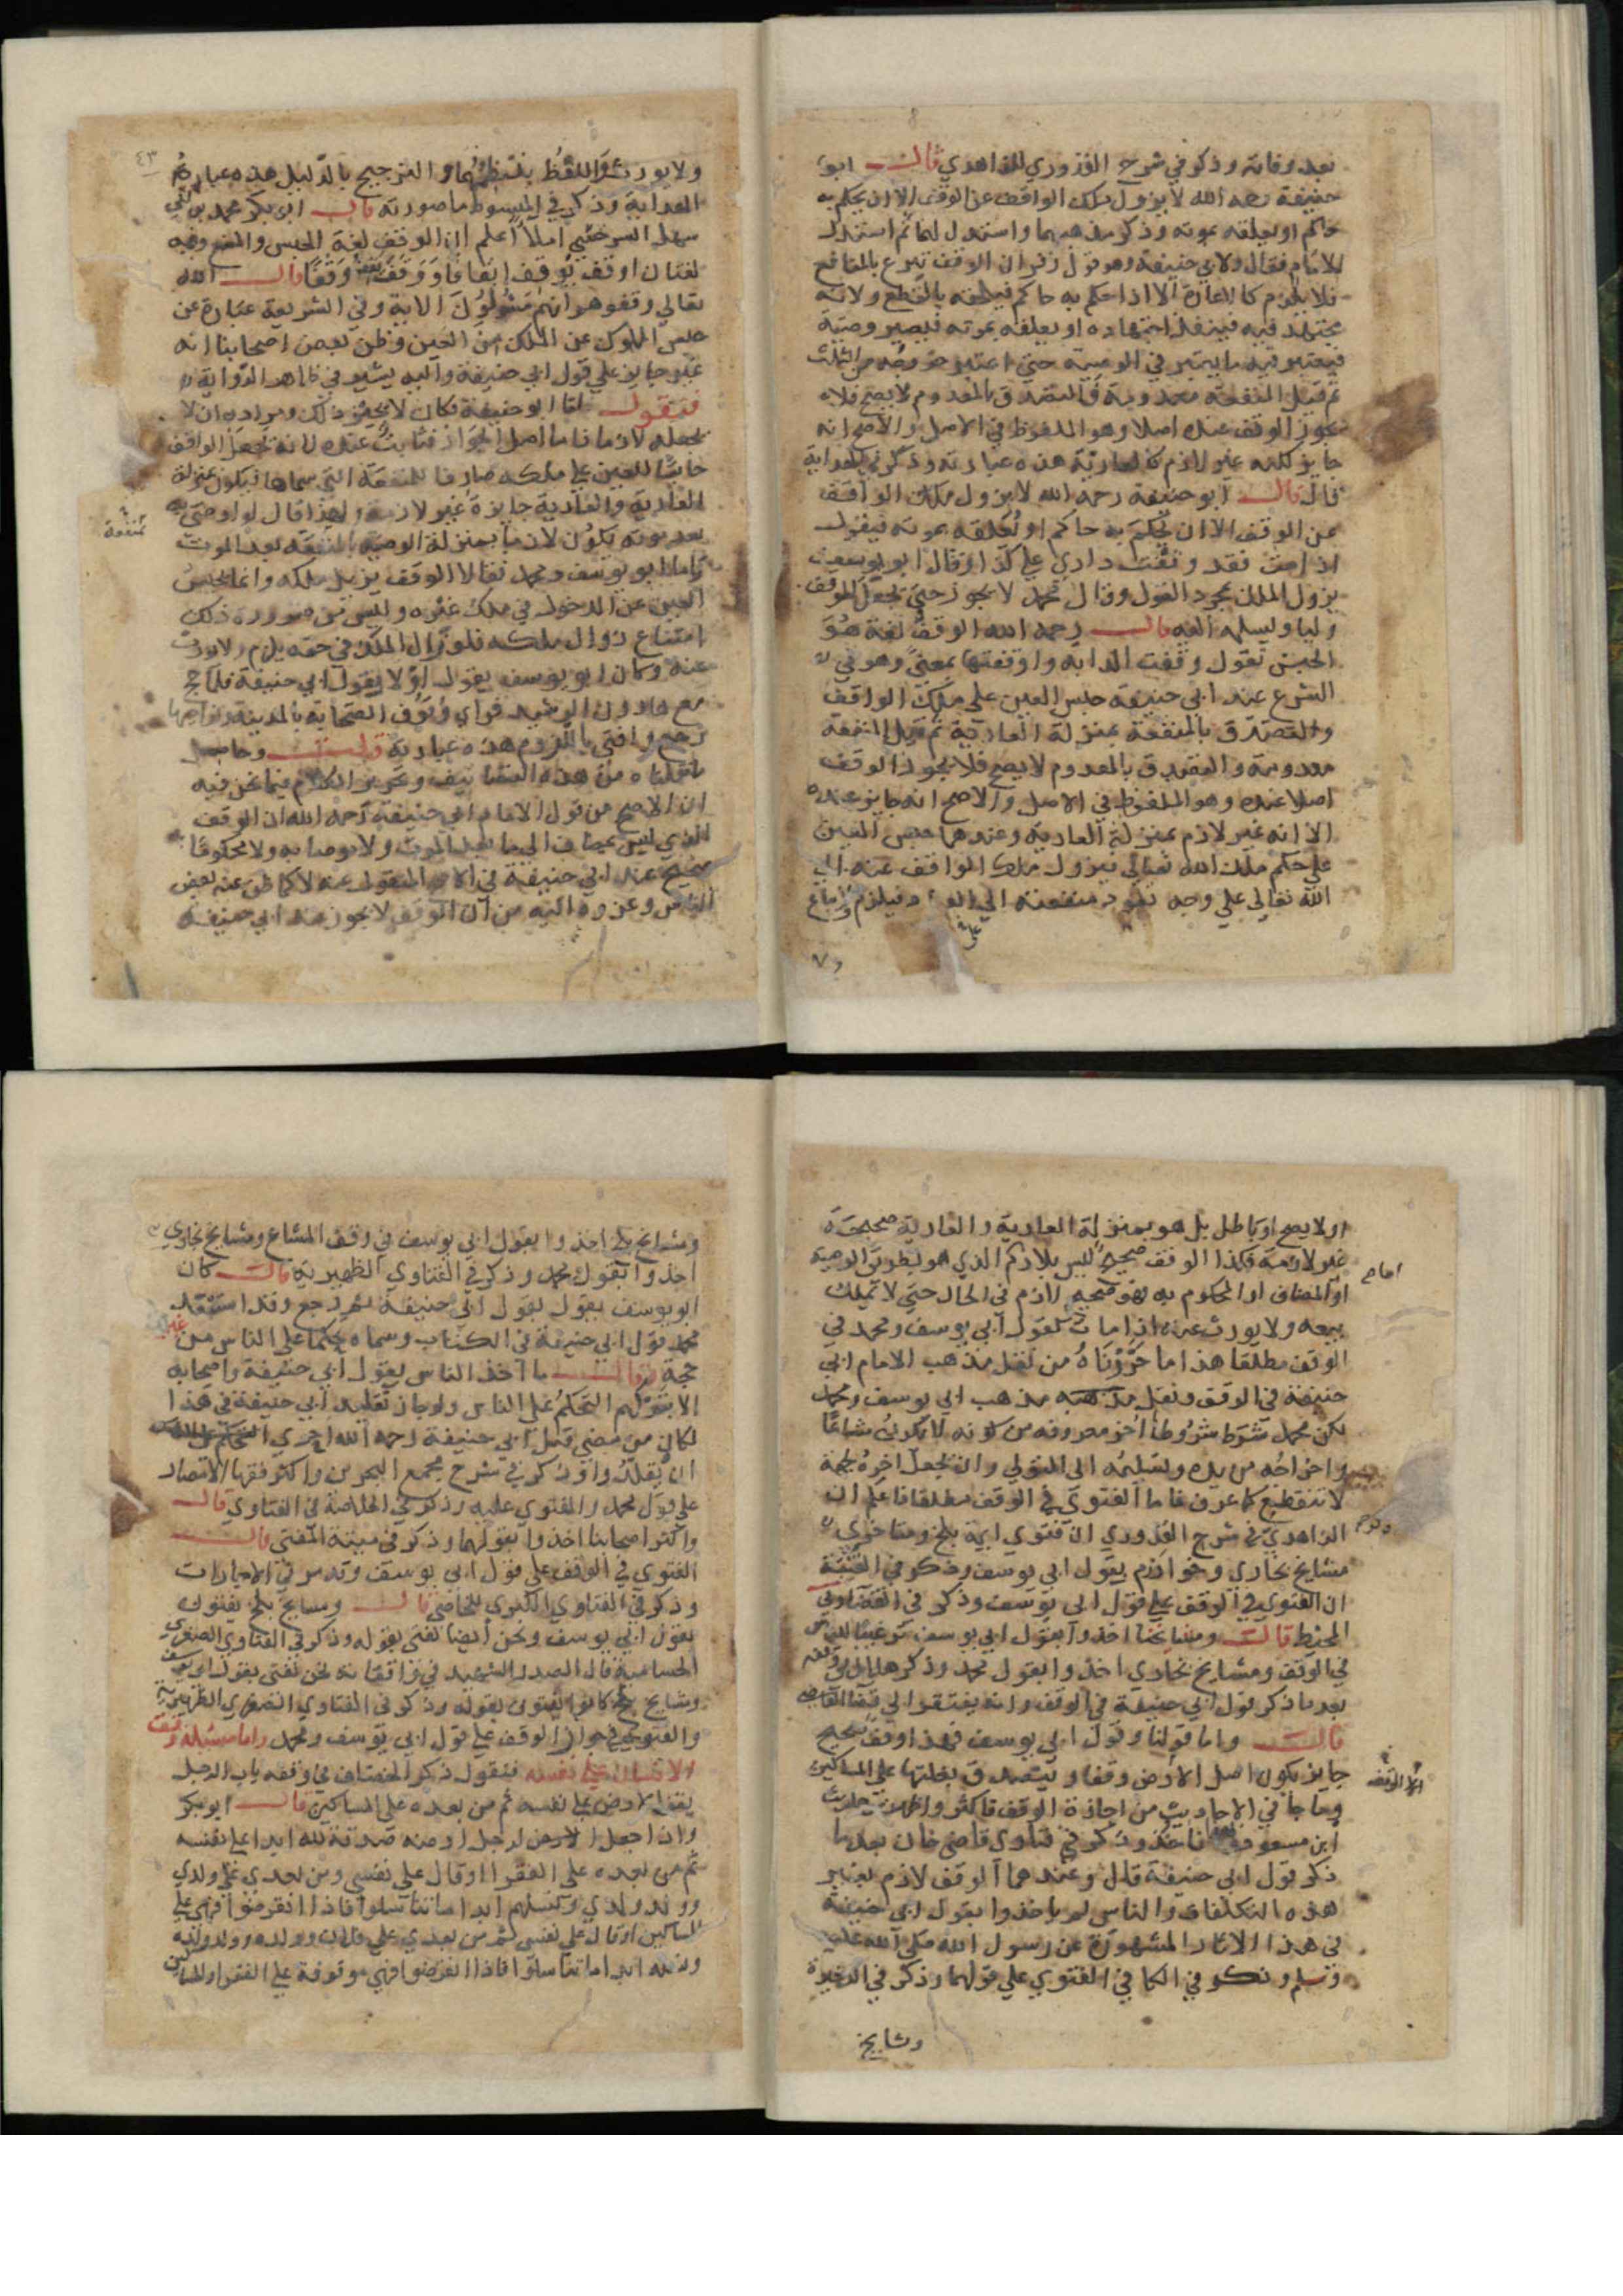 بعد وفاته وذكر في شرح القدوري للزاهدي قال ابو
حنيفة رحمه الله لا يزول ملك الواقف عن الوقف الا ان يحكم به
حاكم او يعلقه بموته وذكر مذهبهما واستدل لهما ثم استدل
للامام فقال ولابي حنيفة وهو قول زفر ان الوقف تبرع بالمنافع
فلا يلزم كالاعارة الا اذا حكم به حاكم فيلحقه بالقطع ولانه
مجتهد فيه فينفذ اجتهاده او يعلقه بموته فيصير وصية
فيعتبر فيه ما يعتبر في الوصية حتى اعتبر خروجه من الثلث
ثم قيل المنفعة معدومة والتصدق بالمعدوم لا يصح فلا
يجوز الوقف عنده اصلا وهو الملفوظ في الاصل والاصح انه
جايز لكنه غير لازم كالعارية هذه عبارته وذكر في الهداية
قال قال ابو حنيفة رحمه الله لا يزول ملك الواقف
عن الوقف الا ان يحكم به حاكم او يعلقه بموته فيقول
اذا مت فقد وقفت داري على كذا وقال ابو يوسف
يزول الملك بمجرد القول وقال محمد لا يجوز حتى يجعل للوقف
وليا ويسلمه اليه قال رحمه الله الوقف لغة هو
الحبس تقول وقفت الدابة واوقفتها بمعنى وهو في
الشرع عند ابي حنيفة حبس العين على ملك الواقف
والتصدق بالمنفعة بمنزلة العارية ثم قيل المنفعة
معدومة والتصدق بالمعدوم لا يصح فلا يجوز الوقف
اصلا عنده وهو الملفوظ في الاصل والاصح انه جايز عنده
الا انه غير لازم بمنزلة العارية وعندهما حبس العين
على حكم ملك الله تعالى فيزول ملك الواقف عنه الى
الله تعالى على وجه تعود منفعته الى العباد فيلزم ولا يباع
ولا يورث واللفظ ينتظمهما والترجيح بالدليل هذه عبارة
الهداية وذكر في المبسوط ما صورته قال ابو بكر محمد بن ابي
سهل السرخسي املاً اعلم ان الوقف لغة الحبس والمنع وفيه
لغتان اوقف يوقف ايقافا ووقف يقف وقفا قال الله
تعالى وقفوهم انهم مسؤلون الاية وفي الشريعة عبارة عن
حبس المملوك عن التمليك من الغير وظن بعض اصحابنا انه
غير جايز على قول ابي حنيفة واليه يشير في ظاهر الرواية
فنقول اما ابو حنيفة فكان لا يجيز ذلك ومراده ان لا
يجعله لازما فاما اصل الجواز فثابت عنده لانه يجعل الواقف
حابسا للعين على ملكه صارفا للمنفعة التي سماها فيكون بمنزلة
العارية والعارية جايزة غير لازمة ولهذا قال لو اوصى به
بعد موته يكون لازما بمنزلة الوصية بالمنفعة بعد الموت
فاما ابو يوسف ومحمد فقالا الوقف يزيل ملكه وانما يحبس
العين عن الدخول في ملك غيره وليس من ضرورة ذلك
امتناع زوال ملكه فلزوال الملك في حقه يلزم ولا يورث
عنه وكان ابو يوسف يقول اولا بقول ابي حنيفة فلما حج
مع هارون الرشيد فراى وقوف الصحابة بالمدينة ونواحيها
رجع وافتى باللزوم هذه عبارته قلت وحاصل
ما نقلناه من هذه التصانيف وتحرير الكلام فيما نحن فيه
ان الاصح من قول الامام ابي حنيفة رحمه الله ان الوقف
الذي ليس بمضاف الى ما بعد الموت ولا موصا به ولا محكوما به
صحيح عند ابي حنيفة في الاصح المنقول عنه لا كما ظن عنه بعض
الناس وعزوه اليه من ان الوقف لا يجوز عند ابي حنيفة
او لا يصح او باطل بل هو بمنزلة العارية والعارية صحيحة
غير لازمة فكذا الوقف صحيح ليس بلازم الذي هو بطريق الوصية
او المضاف او المحكوم به فهو صحيح لازم في الحال حتى لا يملك
بيعه ولا يورث عنه اذا مات كقول ابي يوسف ومحمد في
الوقف مطلقا هذا ما حررناه من نقل مذهب الامام ابي
حنيفة في الوقف ونقل مذهب ابي يوسف ومحمد
لكن محمد شرط شروطا اخر معروفة من كونه لا يكون مشاعا
واخراجه من يده وتسليمه الى المتولي وان يجعل اخره لجهة
لا تنقطع كما عرف فاما الفتوى في الوقف مطلقا فاعلم ان
الزاهدي في شرح القدوري ان فتوى ايمة بلخ
مشايخ بخارى وخوارزم بقول ابي يوسف وذكر في القنية
ان الفتوى في الوقف على قول ابي يوسف وذكر في الفتاوى
المحيط قال ومشايخنا اخذوا بقول ابي يوسف ترغيبا للناس
في الوقف ومشايخ بخارى اخذوا بقول محمد وذكر هلال في وقفه
بعد ما ذكر قول ابي حنيفة في الوقف وانه يفتقر الى قضا القاضي
قال واما قولنا وقول ابي يوسف فهذا وقف صحيح
جايز يكون اصل الارض وقفا ويتصدق بغلتها على المساكين
وما جا في الاحاديث من اجازة الوقف فاكثر واظهر من حديث
ابن مسعود فبهذا ناخذ وذكر في فتاوى قاضي خان بعد ما
ذكر قول ابي حنيفة قال وعندهما الوقف لازم بغير
هذه التكلفات والناس لم ياخذوا بقول ابي حنيفة
في هذا للاثار المشهورة عن رسول الله صلى الله عليه
وسلم وذكر في الكافي الفتوى على قولهما وذكر في الذخيرة
ومشايخ
ومشايخ بلخ اخذوا بقول ابي يوسف في وقف المشاع ومشايخ بخارى
اخذوا بقول محمد وذكر في الفتاوي الظهيرية قال كان
ابو يوسف يقول بقول ابي حنيفة ثم رجع وقد استبعد
محمد قول ابي حنيفة في الكتاب وسماه تحكما على الناس من غير
حجة وقال ما اخذ الناس بقول ابي حنيفة واصحابه
الا بتركهم التحكم على الناس ولو جاز تقليد ابي حنيفة في هذا
لكان من مضى قبل ابي حنيفة رحمه الله احرى
ان يقلدوا وذكر في شرح مجمع البحرين واكثر فقها الامصار
على قول محمد والفتوى عليه وذكر في الخلاصة في الفتاوي قال
واكثر اصحابنا اخذوا بقولهما وذكر في منية المفتي قال
الفتوى في الوقف على قول ابي يوسف وقد مر في الاجارات
وذكر في الفتاوي الكبرى للخاصي قال ومشايخ بلخ يفتون
بقول ابي يوسف ونحن ايضا نفتي بقوله وذكر في الفتاوي الصغرى
الحسامية قال الصدر الشهيد في واقعاته نحن نفتي بقول ابي يوسف
ومشايخ بلخ كانوا يفتون بقوله وذكر في الفتاوي الصغرى الظهيرية
والفتوى في جواز الوقف على قول ابي يوسف ومحمد واما مسئلة وقف
الانسان على نفسه فنقول ذكر الخصاف في وقفه باب الرجل
يقف الارض على نفسه ثم من بعده على المساكين قال ابو بكر
واذا جعل الارض لرجل ارضه صدقة لله ابدا على نفسه
ثم من بعده على الفقرا او قال على نفسي ومن بعدي على ولدي
وولد ولدي ونسلهم ابدا ما تناسلوا فاذا انقرضوا فهي على
المساكين او قال على نفسي ثم من بعدي على فلان وولده وولد ولده
ونسله ابدا ما تناسلوا فاذا انقرضوا فهي موقوفة على الفقرا والمساكين